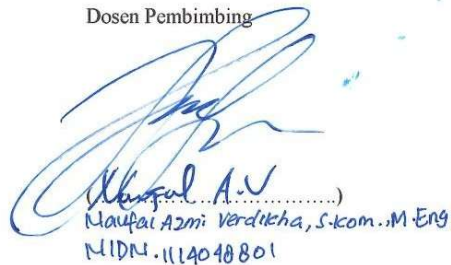 Dosen Pembimbing
(Naufal A.V..............)
Naufal Azmi Verdikha, S.kom.,M.Eng
NIDN.1114048801